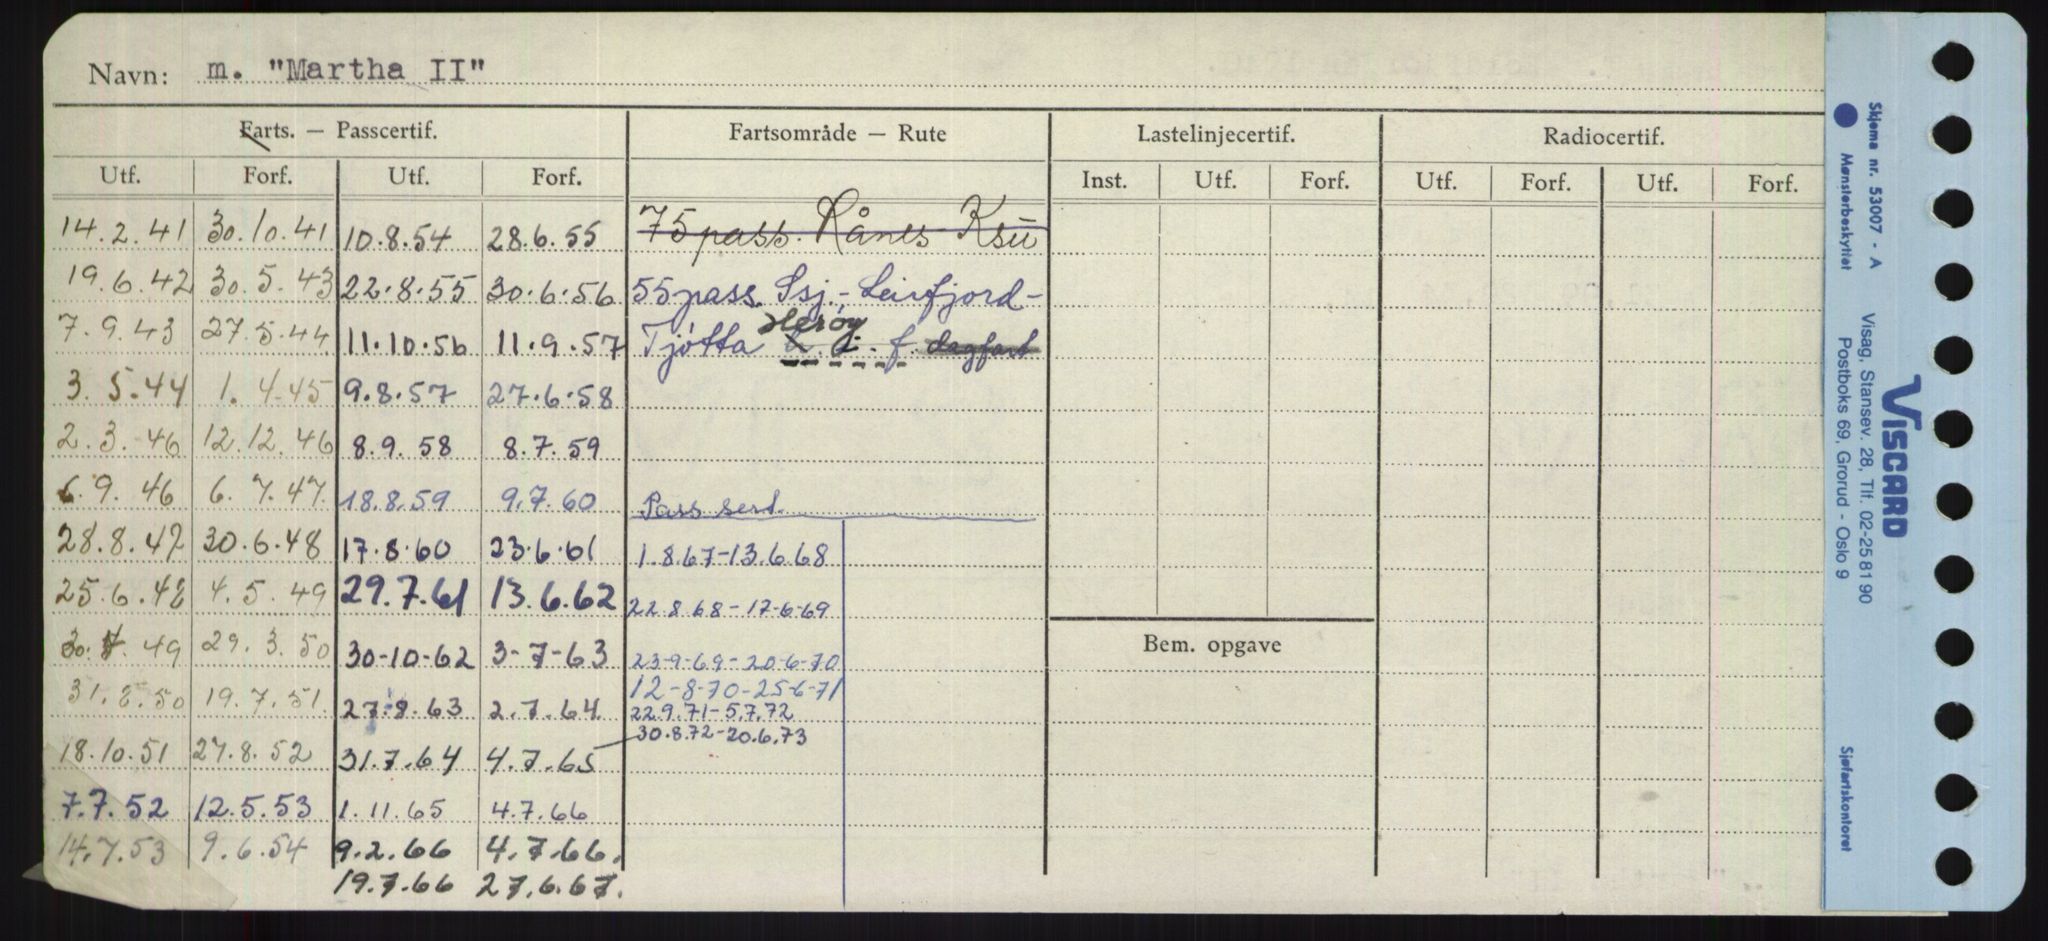 Navn: m. "Martha II"
Farts. — Passcertif. Fartsområde — Rute Lastelinjecertif. Radiocertif.
Utf. Forf. Utf. Forf. Inst. Utf. Forf. Utf. Forf. Utf. Forf.
14.2.41 30.10.41 10.8.54 28.6.55 75 pass. Rånes Ksū
19.6.42 30.5.43 22.8.55 30.6.56 55 pass. Ssj.-Leirfjord-
Herøy
7.9.43 27.5.44 11.10.56 11.9.57 Tjøtta f. dagfart
3.5.44 1.4.45 9.8.57 27.6.58
2.3.46 12.12.46 8.9.58 8.7.59
6.9.46 6.7.47 18.8.59 9.7.60 Pass sert.
28.8.47 30.6.48 17.8.60 23.6.61 1.8.67-13.6.68
25.6.48 4.5.49 29.7.61 13.6.62 22.8.68-17-6-69
49 29.3.50 30-10-62 3-7-63 23-9-69-20-6-70
12-8-70-25-6-71
31.8.50 19.7.51 27.8.63 2.7.64 22.9.71-5.7.72
30.8.72-20.6.73
18.10.51 27.8.52 31.7.64 4.7.65
7.7.52 12.5.53 1.11.65 4.7.66
14.7.53 9.6.54 9.2.66 4.7.66.
19.7.66 27.6.67.
Bem. opgave
Skjema nr. 53007 - A
Mønsterbeskyttet
Visag, Stansev. 28, Tlf. 02-25 81 90
Postboks 69, Grorud - Oslo 9
VISCARD
Sjøfartskontoret